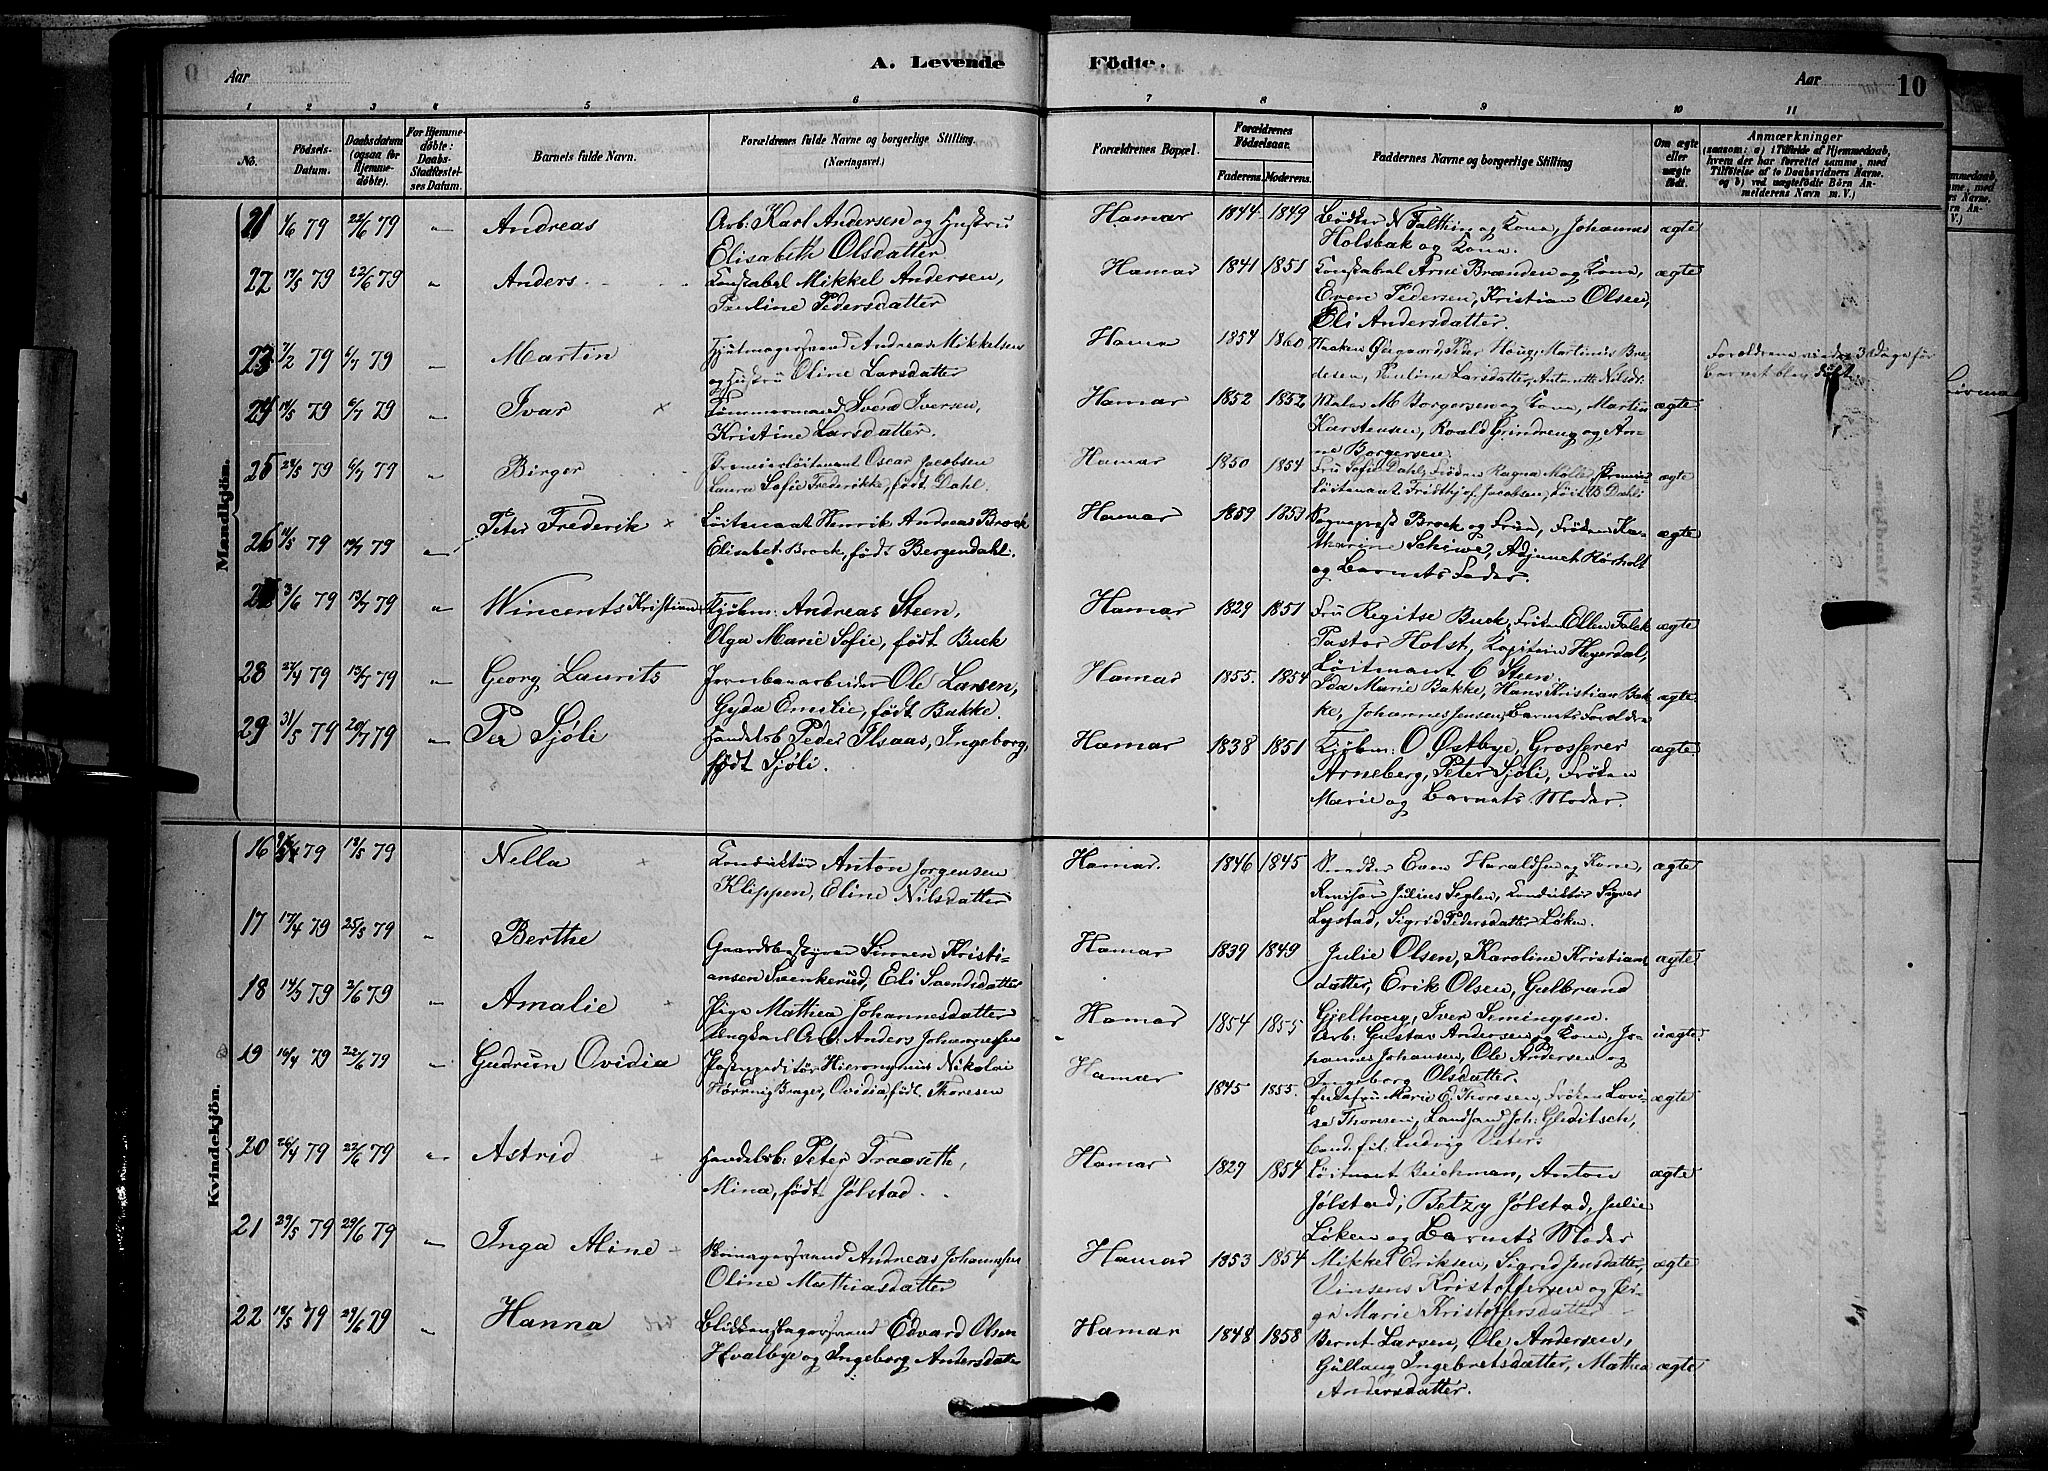 A. Levende Födte.
Aar
Aar 10
1 2 3 4 5 6 7 8 9 10 11
No.
Födsels-Datum.
Daabsdatum (ogsaa for Hjemme-döbte).
For Hjemme-döbte: Daabs-Stadfæstel-ses Datum.
Barnets fulde Navn.
Forældrenes fulde Navne og borgerlige Stilling. (Næringsvei.)
Forældrenes Bopæl.
Forældrenes Födselsaar.
Faderens. Moderens.
Faddernes Navne og borgerlige Stilling
Om ægte eller uægte födt.
Anmærkninger
(saasom: a) i Tilfælde af Hjemmedaab,
hvem der har forrettet samme, med
Tilföielse af to Daabsvidners Navne.
og b) ved uægtefödte Börn An-
melderens Navn m. V.)
Mandkjön.
21 1/6 79 22/6 79 " Andreas
Arb: Karl Andersen og Hustru
Elisabeth Olsdatter
Hamar 1844 1849
Bødker N Falthin og Kone, Johannes
Holsbak og Kone.
ægte
22 19/5 79 22/6 79 " Anders
Konstabel Mikkel Andersen,
Pauline Pedersdatter
Hamar 1841 1851
Konstabel Arne Brænden og Kone,
Even Pedersen, Kristian Olsen,
Eli Andersdatter.
ægte
23 7/2 79 6/7 79 " Martin
Hjulmagersvend Andreas Mikkelsen
og Hustru Oline Larsdatter
Hamar 1854 1860
Haaken Øegaard, Peer Haug, Martinus Bre-
desen, Pauline Larsdatter, Antonette Nilsdr.
Forældrene viedes 3 Dage før
Barnet blev døbt.
24 14/5 79 6/7 79 " Ivar
Tømmermand Svend Iversen,
Kristine Larsdatter.
Hamar 1852 1852
Maler M Borgersen og Kone, Martin
Karstensen, Roald Grindreng og An-
ne Borgersen
ægte
25 29/5 79 6/7 79 " Birger
Premierløitenant Oscar Jacobsen
Laura Sofie Frederikke, født Dahl.
Hamar 1850 1854
Fru Sofie Dahl, Frøken Ragna Møller, Premier-
Løitenant Fridthjof Jacobsen, Løit B Dahl
ægte
26 14/5 79 79 " Peter Frederik
Løitenant Henrik Andreas Brock
Elisabet Brock, født Bergendahl.
Hamar 1859 1853
Sogneprest Brock og Frue, Frøken Ka-
tharine Schiwe, Adjunct Rørholt
og Barnets Fader.
ægte
3/6 79 13/7 79 " Wincents Kristian
Kjøbm: Andreas Steen,
Olga Marie Sofie, født Buck
Hamar 1829 1851
Fru Regitse Buck, Frøken Ellen Falck
Pastor Holst, Kapitein Heyerdal,
Løitenant C Steen
ægte
28 27/4 79 13/7 79 " Georg Laurits
Jernbanearbeider Ole Larsen,
Gyda Emilie, født Bakke.
Hamar 1855. 1854
Ida Marie Bakke, Hans Kristian Bak-
ke, Johannes Jensen, Barnets Forældre
ægte
29 31/5 79 20/7 79 " Per Sjøli
Handelsb Peder Ilsaas, Ingeborg,
født Sjøli.
Hamar 1838 1851
Kjøbm: O Østbye, Grosserer
Arneberg, Peter Sjøli, Frøken
Marie og Barnets Moder.
ægte
Kvindekjön.
16 79 18/5 79 Nella
Konduktør Anton Jørgensen
Klippen, Eline Nilsdatter
Hamar. 1846 1845
Even Haraldsen og Kone,
Julius Seglen, Konduktør Sigvar
Lystad, Sigrid Pedersdatter Løken.
ægte
17 17/4 79 25/5 79 " Berthe
Gaardsbestyrer Simen Kristi-
ansen Svenkerud, Eli Svendsdatter
Hamar 1839 1849
Julie Olsen, Karoline Kristians
datter, Erik Olsen, Gulbrand
Gjelhoug, Iver Simingsen.
ægte
18 14/3 79 2/6 79 " Amalie
Pige Mathea Johannesdatter
Ungkarl Arb: Anders Johannessen
Hamar 1854 1855
Arb: Gustav Andersen og Kone, Jo-
hannes Johansen, Ole Andersen og
Ingeborg Olsdatter.
uægte
19 16/4 79 22/6 79 " Gudrun Ovidia
Postexpeditør Hieronymus Nikolai
Hørning Brager, Ovidia, født Thoresen
Hamar 1845 1855.
Marie E Thoresen, Frøken Lovi-
se Thoresen, Landhand Joh: Gleditsch,
Cand. fil. Ludvig Veter.
ægte
20 26/4 79 22/6 79 " Astrid
Handelsb. Peter Traaseth,
Mina, født Jølstad.
Hamar 1829 1854
Løitnant Beichman, Anton
Jølstad, Betzy Jølstad, Julie
Løken og Barnets Moder
ægte
21 29/5 79 29/6 79 " Inga Aline
Skomagersvend Andreas Johannessen
Oline Mathiasdatter
Hamar 1853 1854
Mikkel Eriksen, Sigrid Jensdatter,
Vinsens Kristoffersen og Pi-
ge Marie Kristoffersdatter
ægte
22 18/5 79 29/6 79 " Hanna
Blikkenslagersvend Edvard Olsen
Hvalbye og Ingeborg Andersdatter
Hamar 1848 1858
Bernt Larsen, Ole Andersen,
Gullaug Ingebretsdatter, Mathea
Andersdatter.
ægte